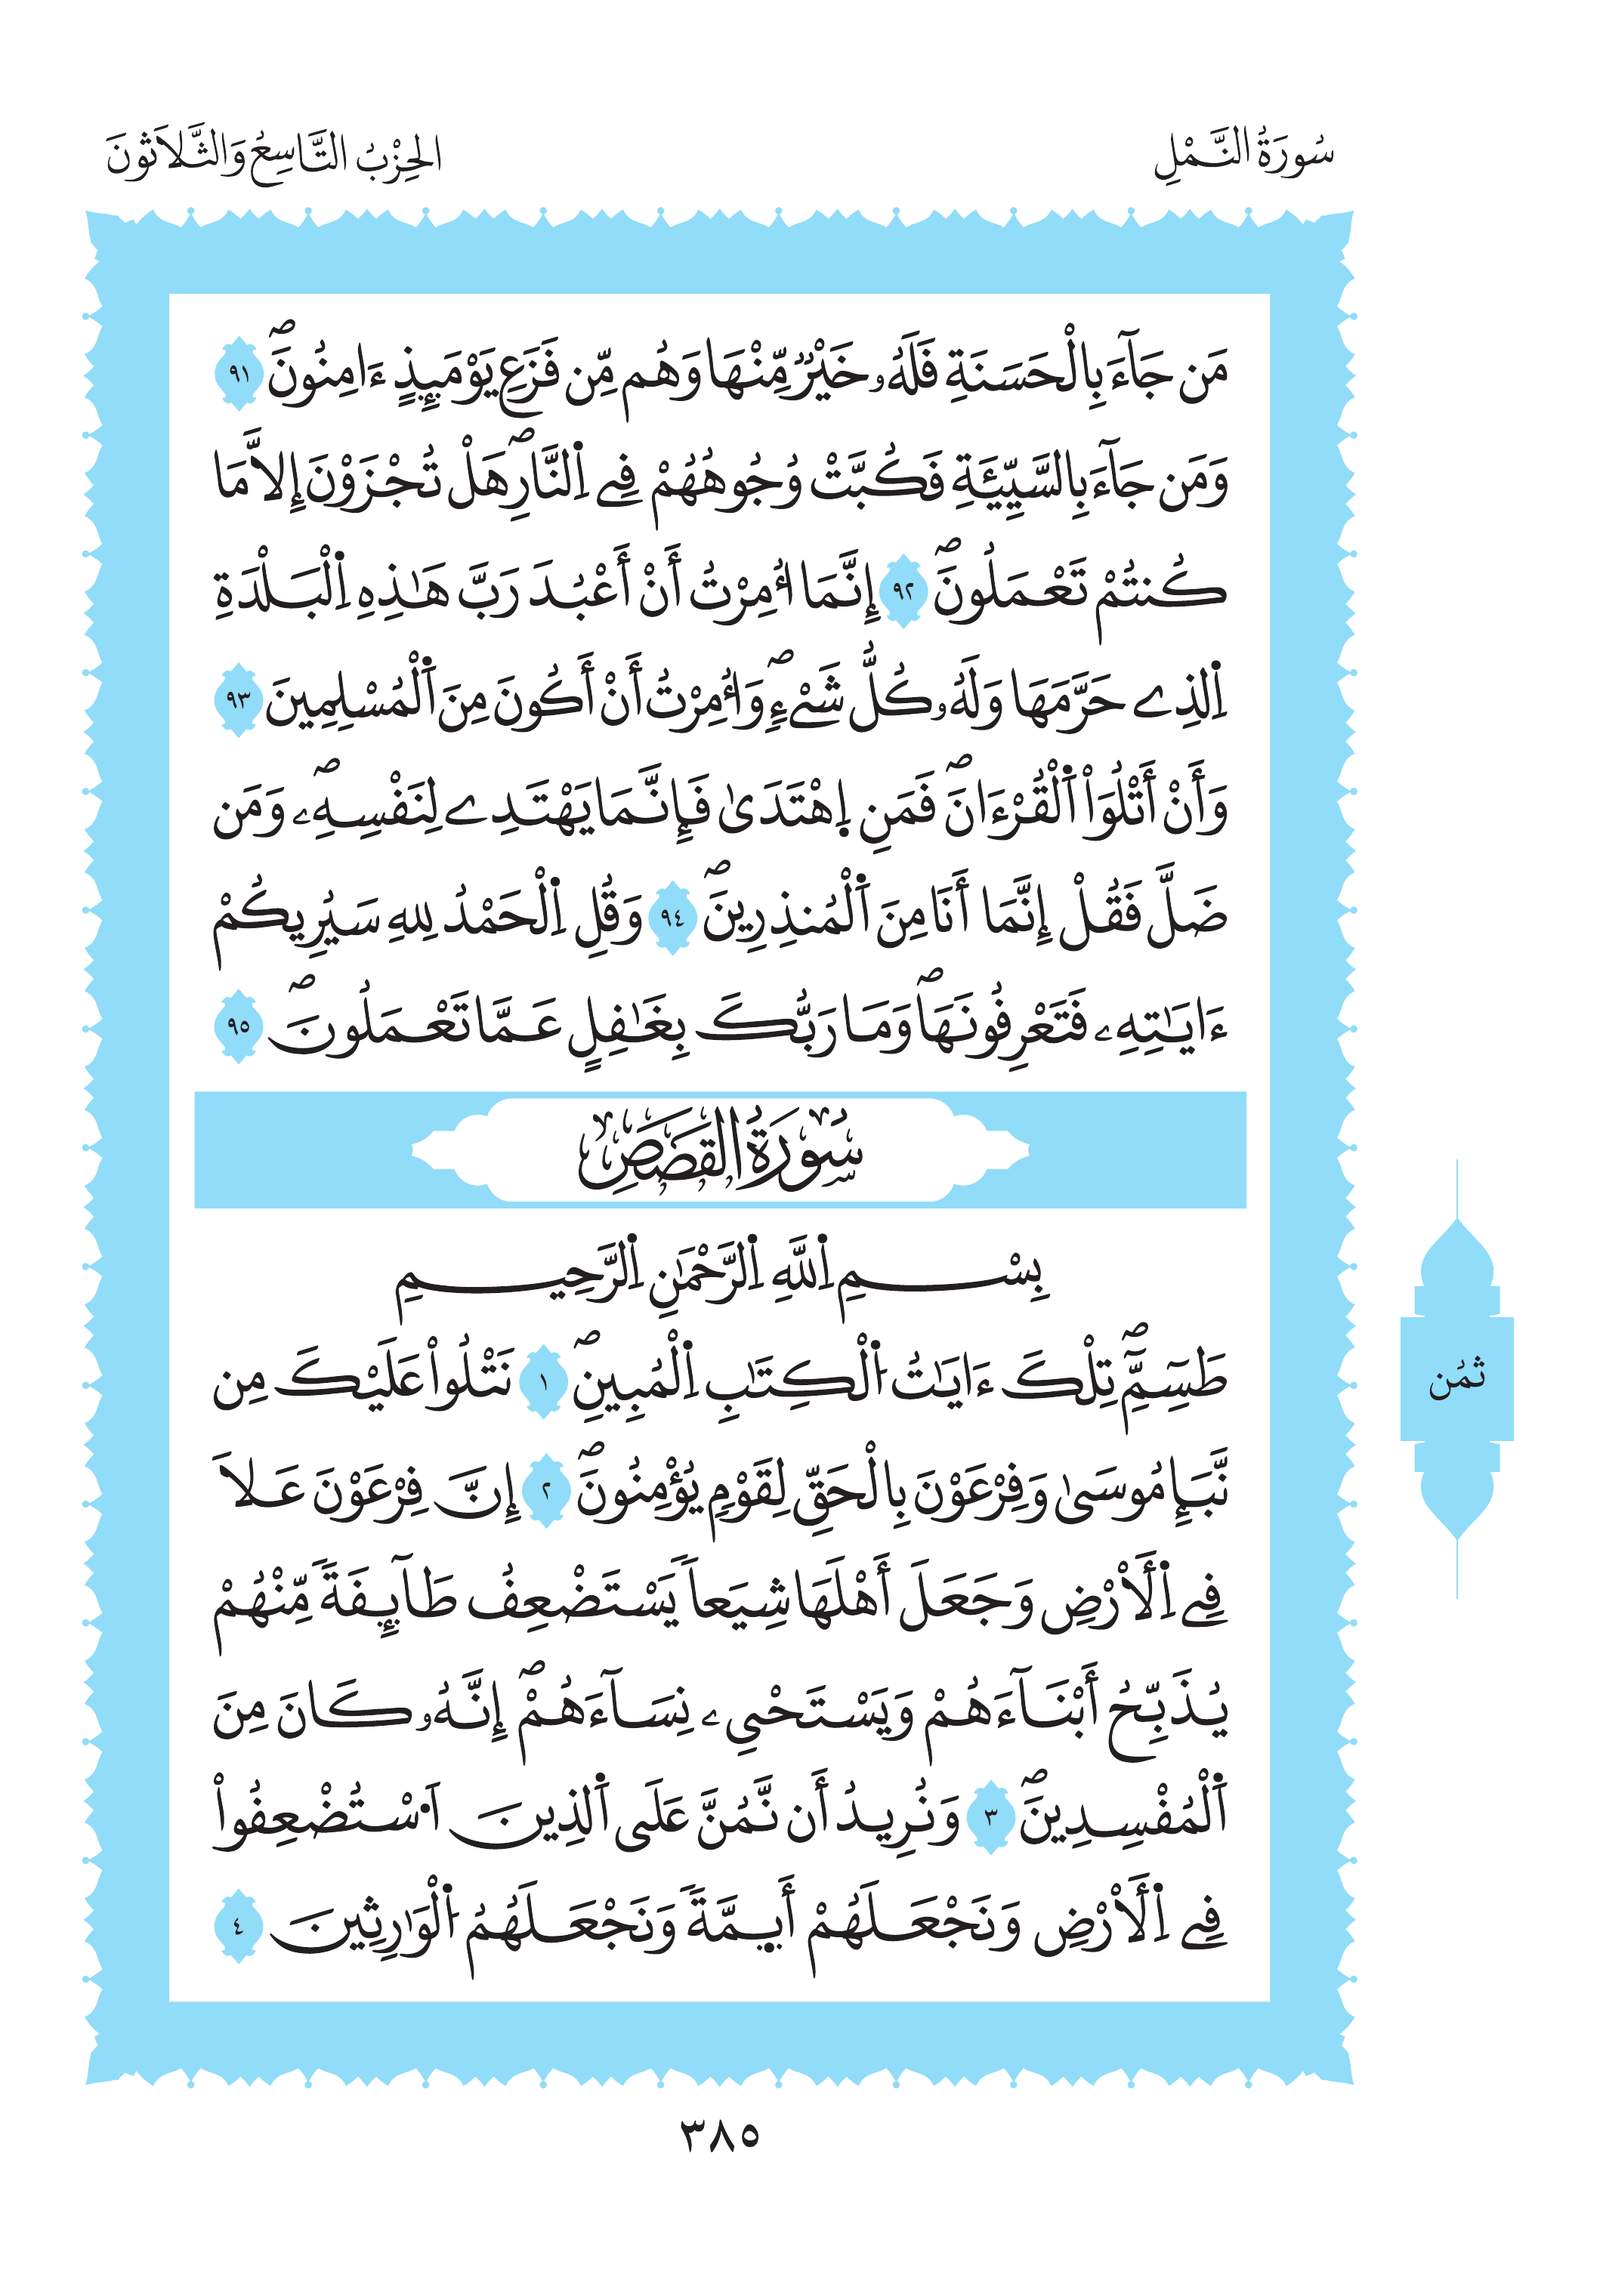 سُورَةُ النَّمْلِ
الحِزْبُ التَّاسِعُ وَالثَّلَاثُونَ
مَن جَآءَ بِالْحَسَنَةِ فَلَهُۥ خَيْرٌ مِّنْهَا وَهُم مِّن فَزَعِ يَوْمَئِذٍ ءَامِنُونَۖ ٩١
وَمَن جَآءَ بِالسَّيِّئَةِ فَكُبَّتْ وُجُوهُهُمْ فِے اِ۬لنَّارِۖ هَلْ تُجْزَوْنَ إِلَّا مَا
كُنتُمْ تَعْمَلُونَۖ ٩٢ إِنَّمَا أُمِرْتُ أَنْ أَعْبُدَ رَبَّ هَٰذِهِ اِ۬لْبَلْدَةِ
اِ۬لذِے حَرَّمَهَا وَلَهُۥ كُلُّ شَےْءٖۖ وَأُمِرْتُ أَنْ أَكُونَ مِنَ اَ۬لْمُسْلِمِينَ ٩٣
وَأَنْ أَتْلُوَاْ اَ۬لْقُرْءَانَۖ فَمَنِ اِ۪هْتَدَىٰ فَإِنَّمَا يَهْتَدِے لِنَفْسِهِۦۖ وَمَن
ضَلَّ فَقُلْ إِنَّمَا أَنَا مِنَ اَ۬لْمُنذِرِينَۖ ٩٤ وَقُلِ اِ۬لْحَمْدُ لِلهِ سَيُرِيكُمْ
ءَايَٰتِهِۦ فَتَعْرِفُونَهَاۖ وَمَا رَبُّكَ بِغَٰفِلٍ عَمَّا تَعْمَلُونَۖ ٩٥
سُورَةُ القَصَصِ
بِسْمِ اِ۬للَّهِ اِ۬لرَّحْمَٰنِ اِ۬لرَّحِيمِ
طَسِٓمِّٓۖ تِلْكَ ءَايَٰتُ اُ۬لْكِتَٰبِ اِ۬لْمُبِينِۖ ١ نَتْلُواْ عَلَيْكَ مِن
نَّبَإِ مُوسَىٰ وَفِرْعَوْنَ بِالْحَقِّ لِقَوْمٖ يُؤْمِنُونَۖ ٢ إِنَّ فِرْعَوْنَ عَلَا
فِے اِ۬لْأَرْضِ وَجَعَلَ أَهْلَهَا شِيَعاٗ يَسْتَضْعِفُ طَآئِفَةٗ مِّنْهُمْ
يُذَبِّحُ أَبْنَآءَهُمْ وَيَسْتَحْيِۦ نِسَآءَهُمْۖ إِنَّهُۥ كَانَ مِنَ
اَ۬لْمُفْسِدِينَۖ ٣ وَنُرِيدُ أَن نَّمُنَّ عَلَى اَ۬لذِينَ اَ۟سْتُضْعِفُواْ
فِے اِ۬لْأَرْضِ وَنَجْعَلَهُمْ أَئِمَّةٗ وَنَجْعَلَهُمُ اُ۬لْوَٰرِثِينَ ٤
ثُمُن
٣٨٥